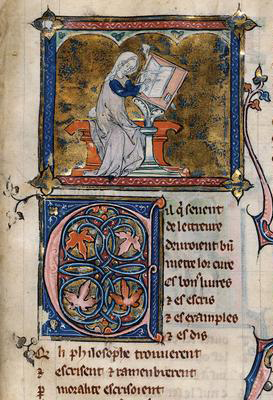 Cil q̃ seuent
de letreure
deuroient bñ
metre lor cure
es bons liures
⁊ es escris
⁊ es examples
⁊ es dis
Q li philosophe trouuerent
⁊ escrisent ⁊ ramenbrerent
p moralite escrisoient